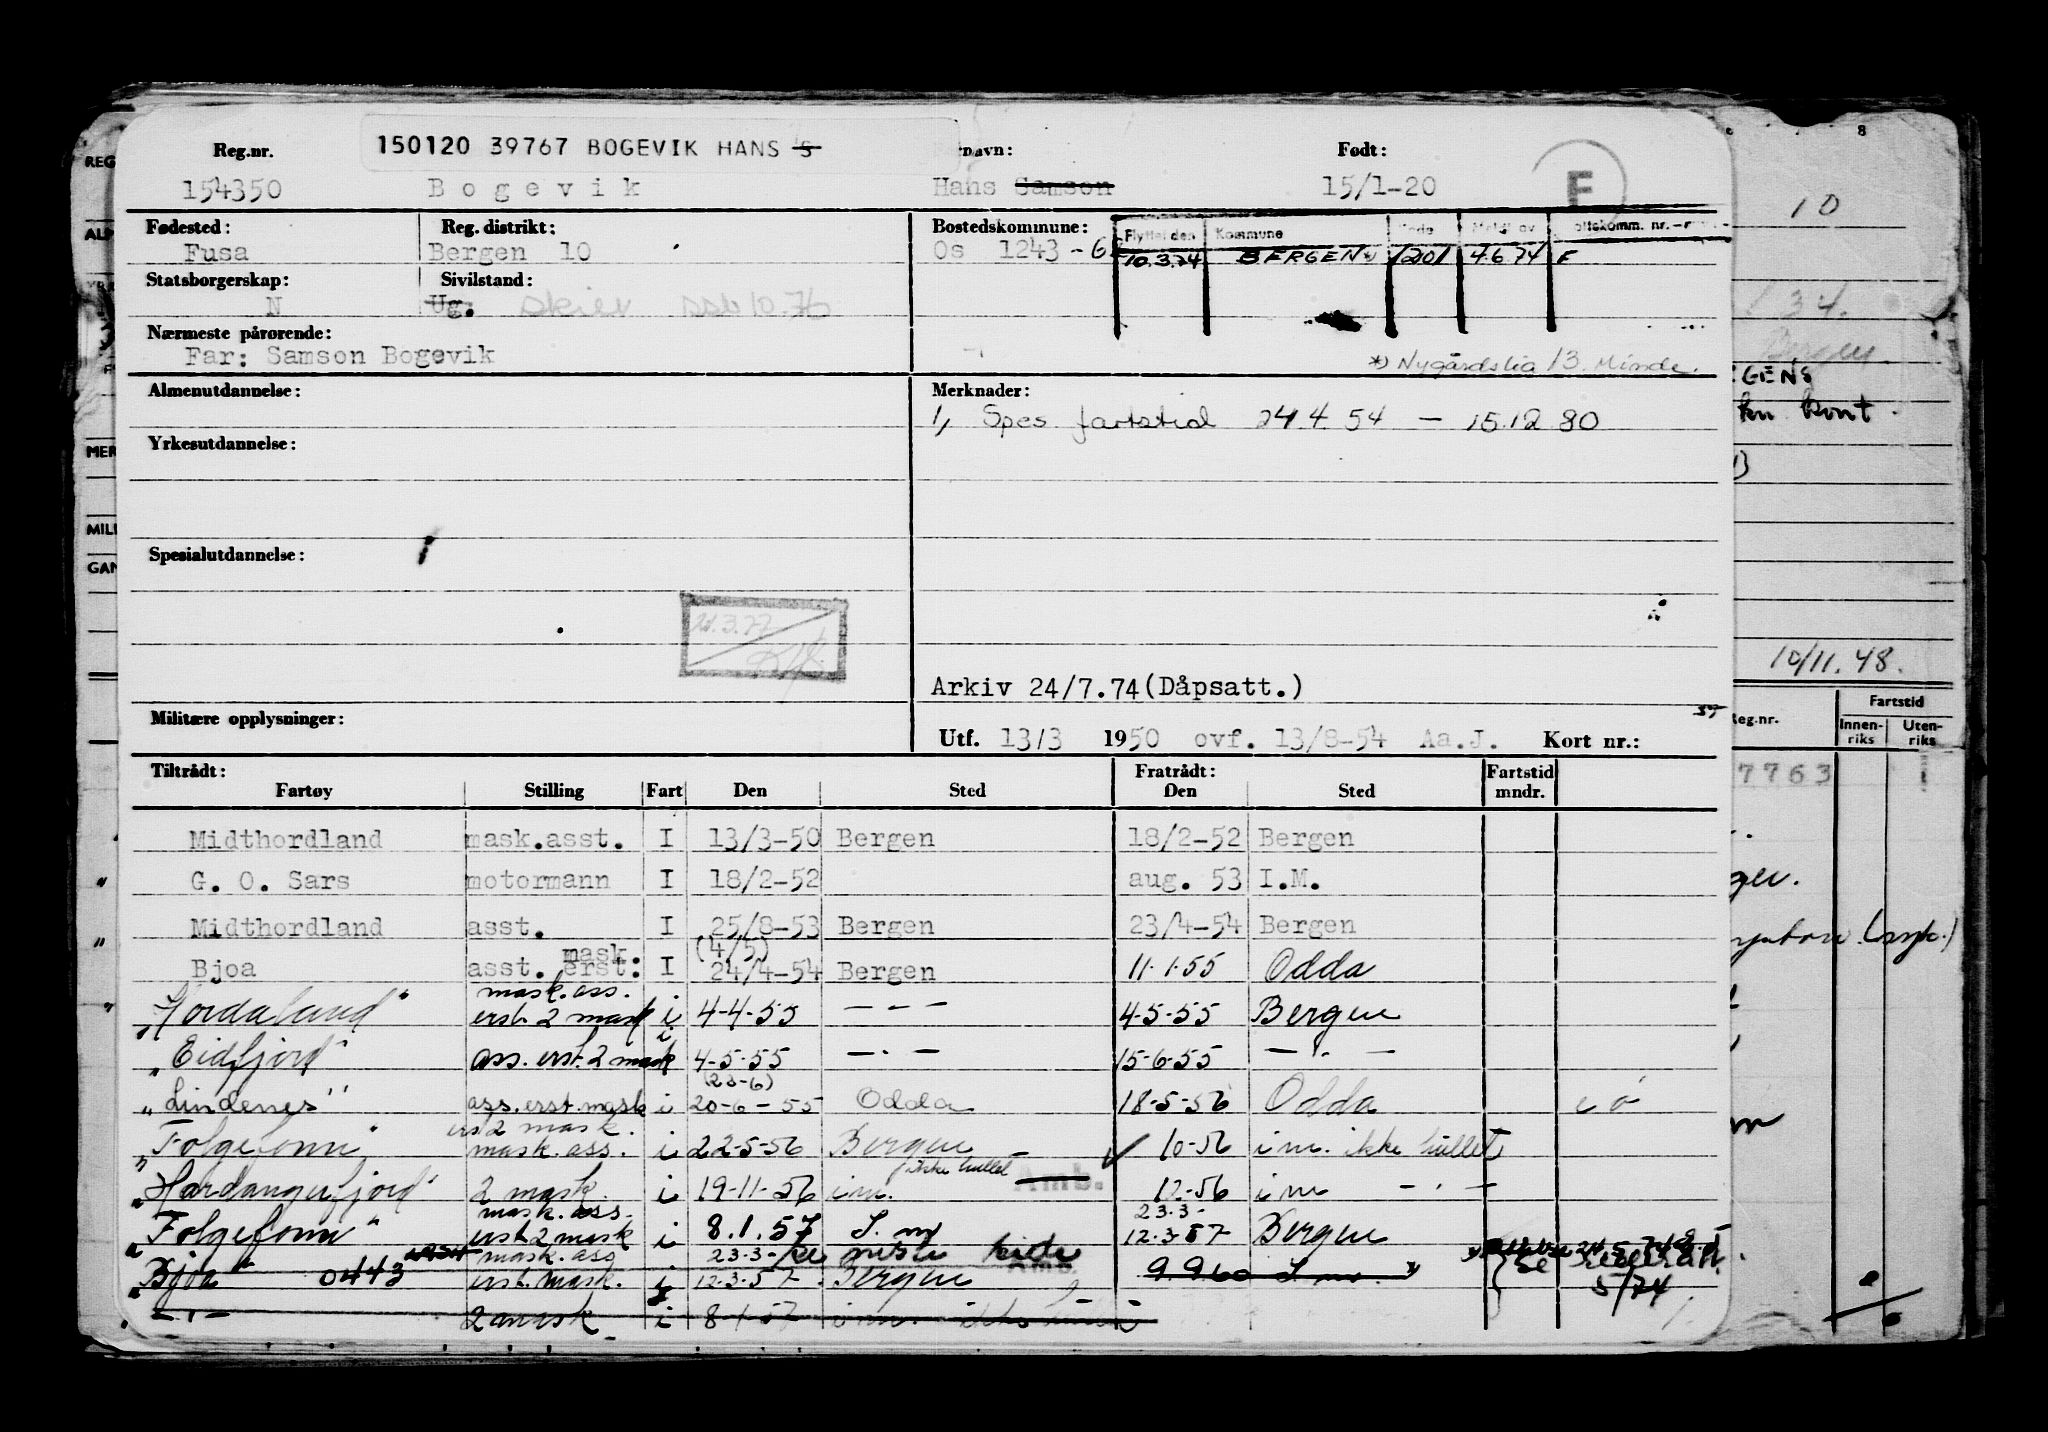 150120 39767 BOGEVIK HANS S
Reg.nr. navn: Født:
154350 Bogevik Hans Samson 15/1-20 F
Fødested: Reg. distrikt: Bostedskommune: Flyttet den Kommune
Fusa Bergen 10 Os 1243 10.3.74 BERGEN *) 1201 4.6.74 F
Statsborgerskap: Sivilstand:
N Ug. skilt
Nærmeste pårørende:
Far: Samson Bogevik *) Nygårdslia 13. Minde.
Almenutdannelse: Merknader:
1, Spes fartstid 24 4 54 — 15.12 80
Yrkesutdannelse:
Spesialutdannelse:
21.3.77
Arkiv 24/7.74 (Dåpsatt.)
Militære opplysninger:
Utf. 13/3 1950 ovf. 13/8-54 Aa.J. Kort nr.:
Tiltrådt: Fratrådt: Fartstid
Fartøy Stilling Fart Den Sted Den Sted mndr.
Midthordland mask.asst. I 13/3-50 Bergen 18/2-52 Bergen
" G. O. Sars motormann I 18/2-52 aug. 53 I.M.
" Midthordland asst. I 25/8-53 Bergen 23/4-54 Bergen
mask. (4/5)
Bjoa asst. erst. I 24/4-54 Bergen 11-1-55 Odda
mask. ass.
"Hordaland" erst. 2 mask i 4-4-55 — " — 4-5-55 Bergen
"Eidfjord" ass. erst. 2 mask i 4-5-55 — " — 15-6-55 — " —
(23-6)
"Lindenes" ass. erst. mask i 20-6-55 Odda 18-5-56 Odda
erst 2 mask.
"Folgefonn" mask. ass. i 22-5-56 Bergen 10-56 i m. ikke hullet
ikke hullet Amb.
"Hardangerfjord" 2 mask. i 19-11-56 i m. 12-56 i m — " —
mask. ass. 23.3-
"Folgefonn" erst 2 mask i 8.1.57 I. m 12-3-57 Bergen
mask. ass 23.3-
"Bjoa" 0443 erst. mask. i 12-3-57 Bergen 9.9.60 I. m. *)
5/74
— " — 2 mask i 8-1-57 i m. ikke
REG
MER
MILI
GAN
8
10
34.
Bergen
10/11.48.
Reg.nr. Fartstid
Innenriks Utenriks
7763